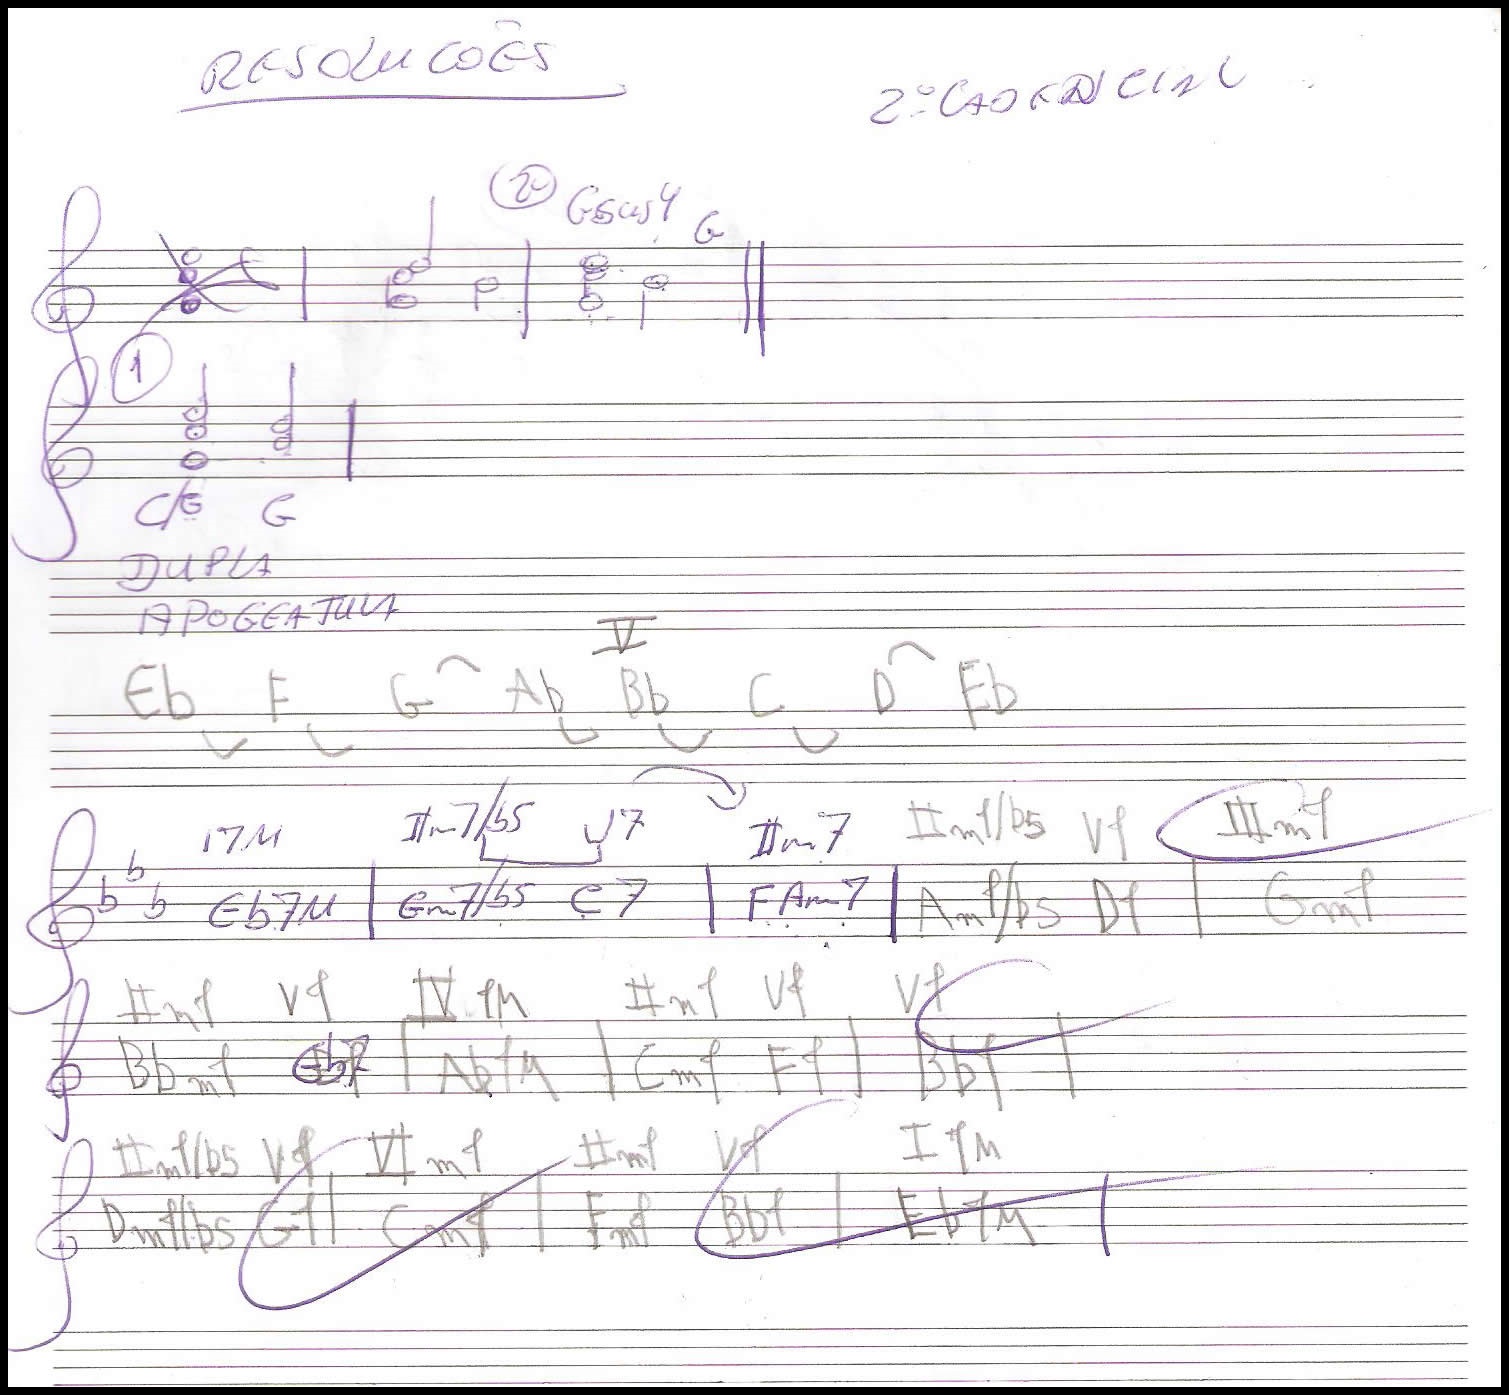 RESOLUCÕES
2º CADENCIAL
② Gsus4 G
①
C/G G
DUPLA
APOGEATURA
V
Eb F G Ab Bb C D Eb
I7M IIm7/b5 V7 IIm7 IIm7/b5 V7 IIIm7
b b b Eb7M Gm7/b5 C7 FAm7 Am7/b5 D7 Gm7
IIm7 V7 IV7M IIm7 V7 V7
Bbm7 Eb7 Ab7M Cm7 F7 Bb7
IIm7/b5 V7 VIm7 IIm7 V7 I7M
Dm7/b5 G7 Cm7 Fm7 Bb7 Eb7M